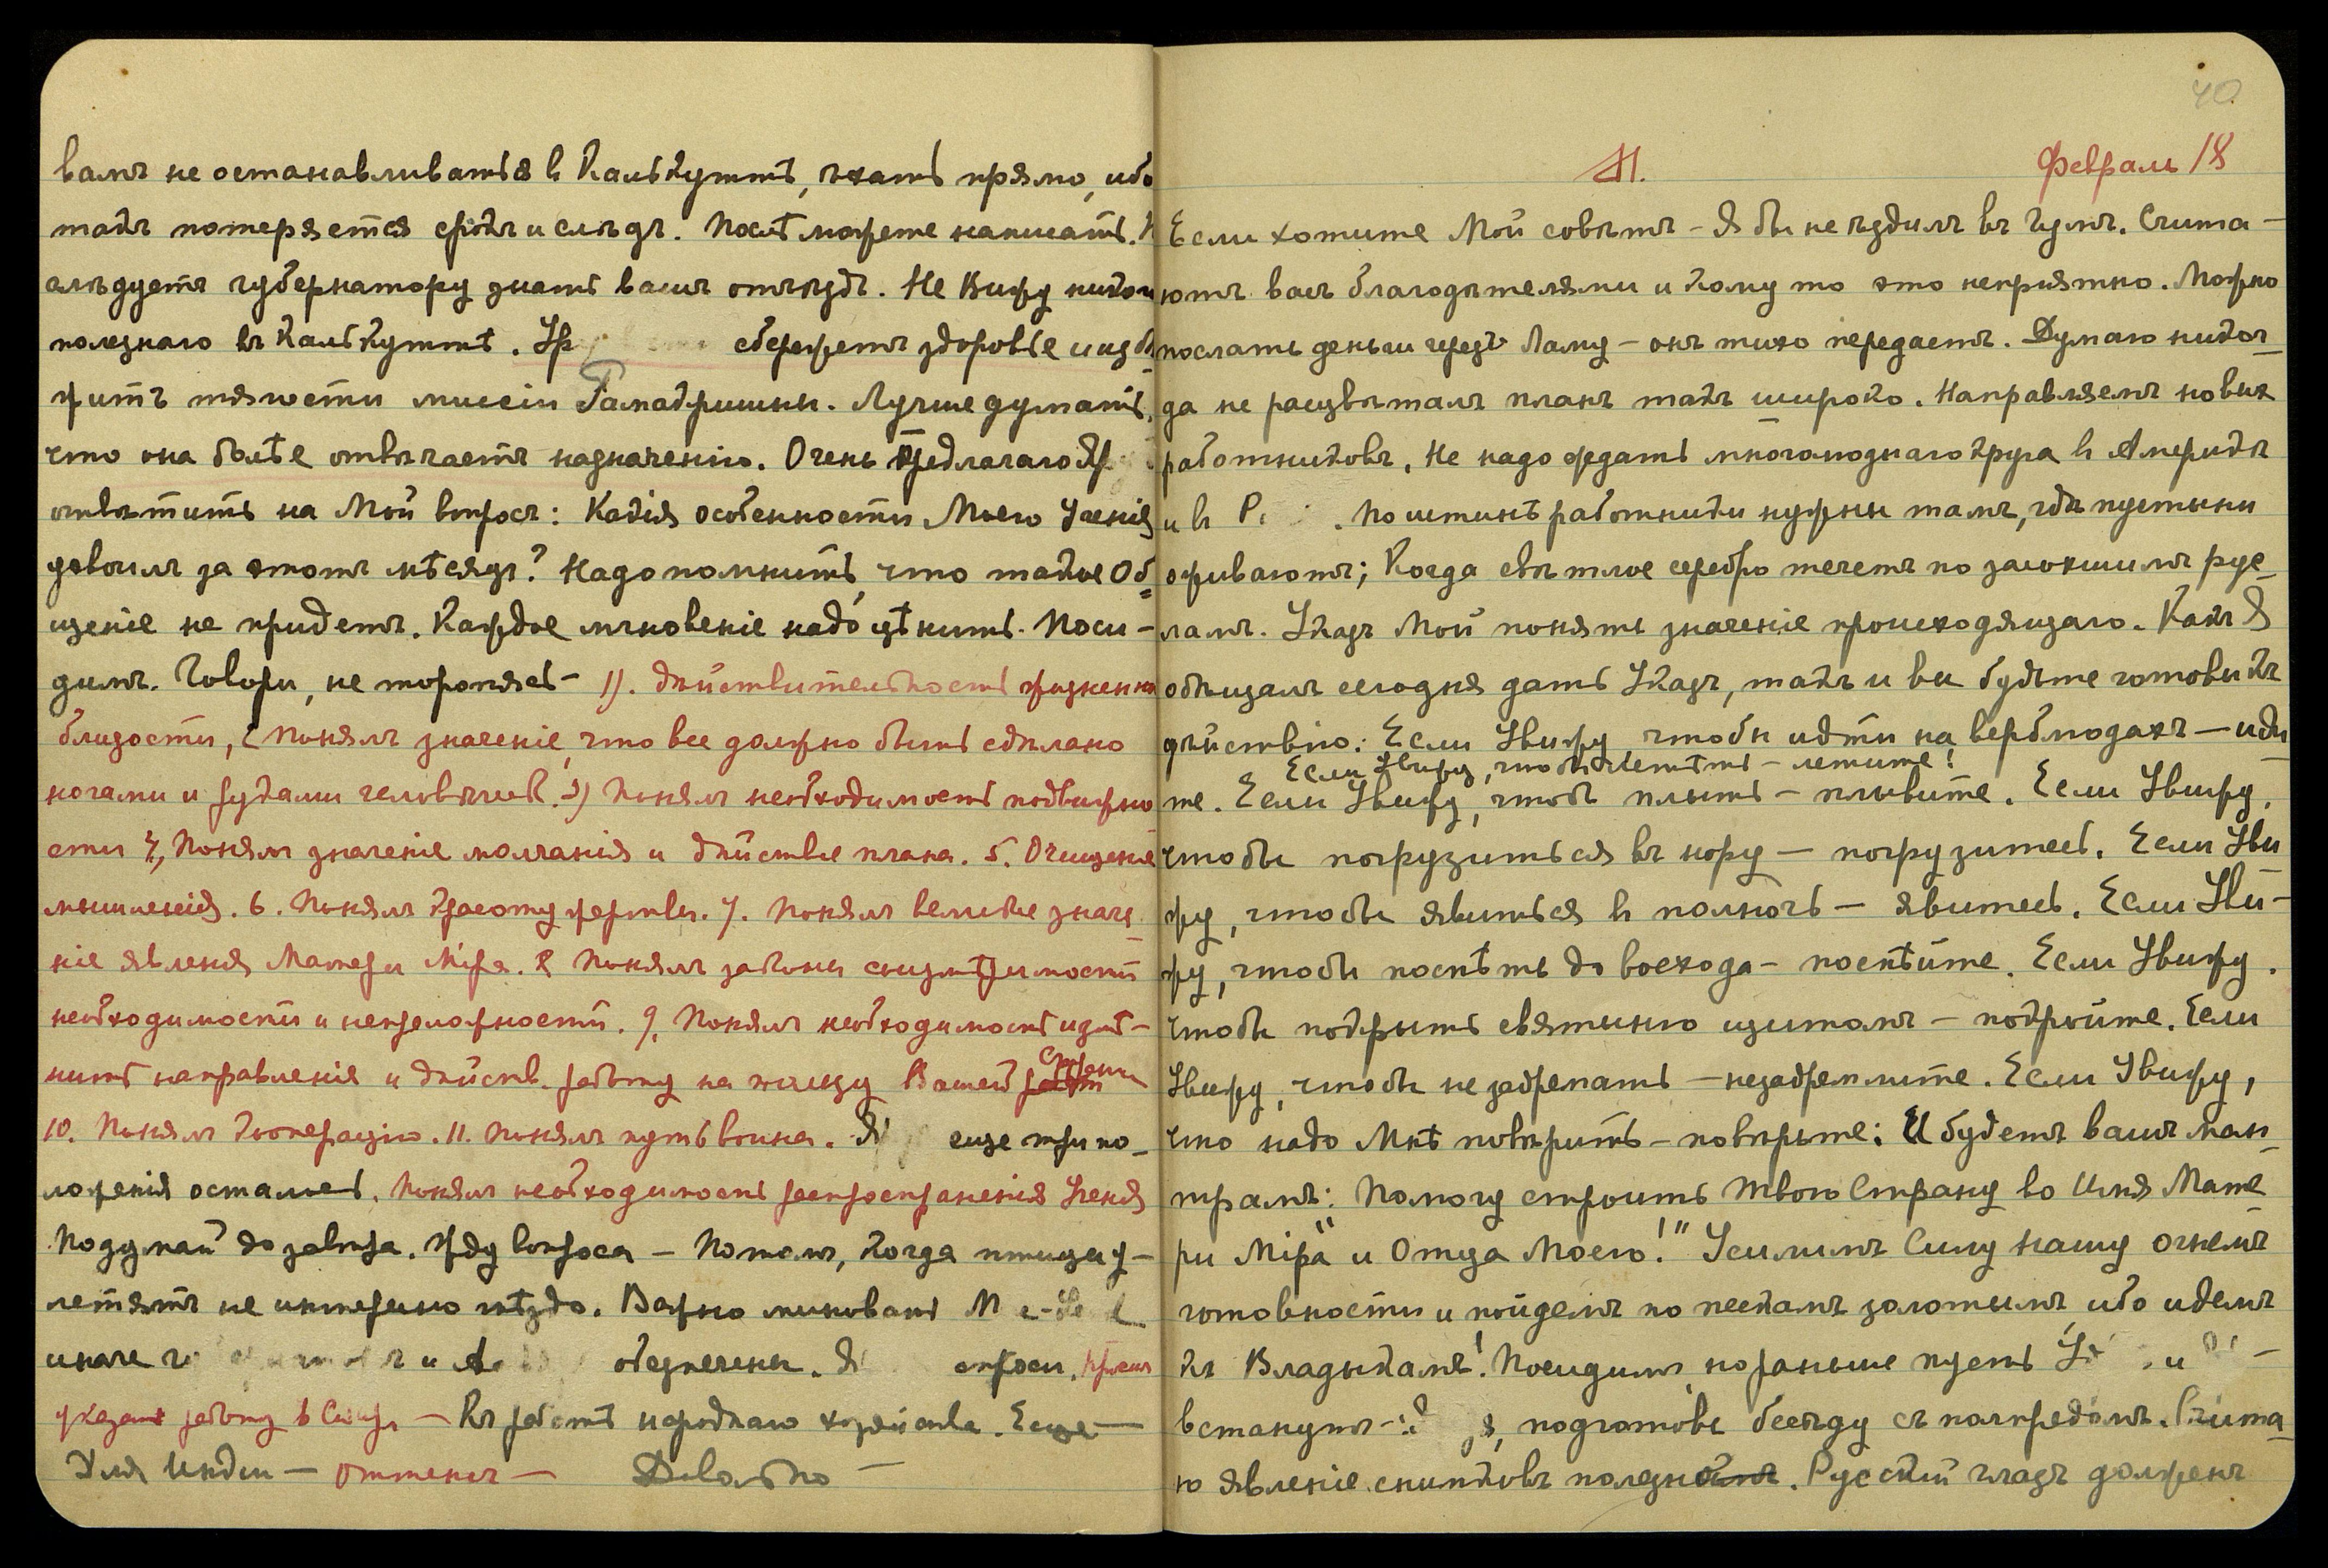 вамъ не останавливаться в Калькуттѣ, ѣхать прямо, ибо
такъ потеряется срокъ и слѣдъ. Послѣ можете написать. Н
слѣдуетъ губернатору знать вашъ отъѣздъ. Не Вижу ничего
полезнаго въ Калькуттѣ. Ур сбережетъ здоровье и изб
житъ тяжести миссіи Рамакришны. Лучше думать,
что она болѣе отвѣчаетъ назначенію. Очень предлагаю Я
отвѣтить на Мой вопросъ: Какія особенности Моего Ученія
усвоилъ за этотъ мѣсяцъ? Надо помнить, что такое Об=
щеніе не придетъ. Каждое мгновеніе надо цѣнить. Поси-
димъ. Говори, не торопясь – 1). дѣйствительность жизненно
близости, 2 Понялъ значеніе, что все должно быть сдѣлано
ногами и руками человѣчес. 3) Понялъ необходимость подвижно
сти 4, Понялъ значеніе молчанія и дѣйствіе плана. 5. Очищеніе
мышленія. 6. Понялъ красоту жертвы. 7. Понялъ великое значе
ніе явленія Матери Міра. 8 Понялъ законы соизмѣримости
необходимости и непреложности. 9. Понялъ необходимость измѣ-
нить направленія и дѣйств. работу на пользу Вашей Страны
10. Понялъ кооперацію. 11. Понялъ путь воина. Я еще три по-
ложенія осталось. Понялъ необходимость распространенія Ученія
Подумай до завтра. Жду вопроса – Потомъ, когда птицы у-
летятъ не интересно гнѣздо. Важно миновать М
иначе и А обезпечены. Я спроси. Прошу
указать работу в Сибири – Въ работѣ народнаго хозяйства. Еще –
Для Индіи – оттѣнокъ – Довольно –
40
М. Февраль 18
Если хотите Мой совѣтъ – Я бы не ѣздилъ въ Гумъ. Счита-
ютъ васъ благодѣтелями и кому то это непріятно. Можно
послать деньги черезъ Ламу – онъ тихо передастъ. Думаю никог-
да не расцвѣталъ планъ такъ широко. Направляемъ новых
работниковъ, не надо ждать многоводнаго круга в Америкѣ
и в Р . Поистинѣ работники нужны тамъ, гдѣ пустыни
оживаютъ; Когда свѣтлое серебро течетъ по засохшимъ рус-
ламъ. Указъ Мой понять значеніе происходящаго. Какъ Я
обѣщалъ сегодня дать Указъ, такъ и вы будьте готовы къ
дѣйствію: Если Увижу, чтобы идти на верблюдахъ – иди
Если Увижу, чтобы летѣть – летите!
те. Если Увижу, чтобъ плыть – плывите. Если Увижу,
чтобы погрузиться въ нору – погрузитесь. Если Уви
жу, чтобы явиться в полночь – явитесь. Если Уви-
жу, чтобы поспѣть до восхода – поспѣйте. Если Увижу.
чтобы покрыть святыню щитомъ – покройте. Если
Увижу, чтобы не задремать – незадремлите. Если Увижу,
что надо Мнѣ повѣрить – повѣрьте: И будетъ вашъ ман-
трамъ: Помогу строить твою Страну во Имя Мате
ри Міра" и Отца Моего!" Усилимъ Силу нашу огнемъ
готовности и пойдемъ по пескамъ золотымъ, ибо идемъ
къ Владыкамъ! Посидимъ, но раньше пусть У и –
встанутъ – я, подготовь бесѣду съ полпредомъ. Счита-
ю явленіе снимковъ полезн. Русскій гладъ долженъ